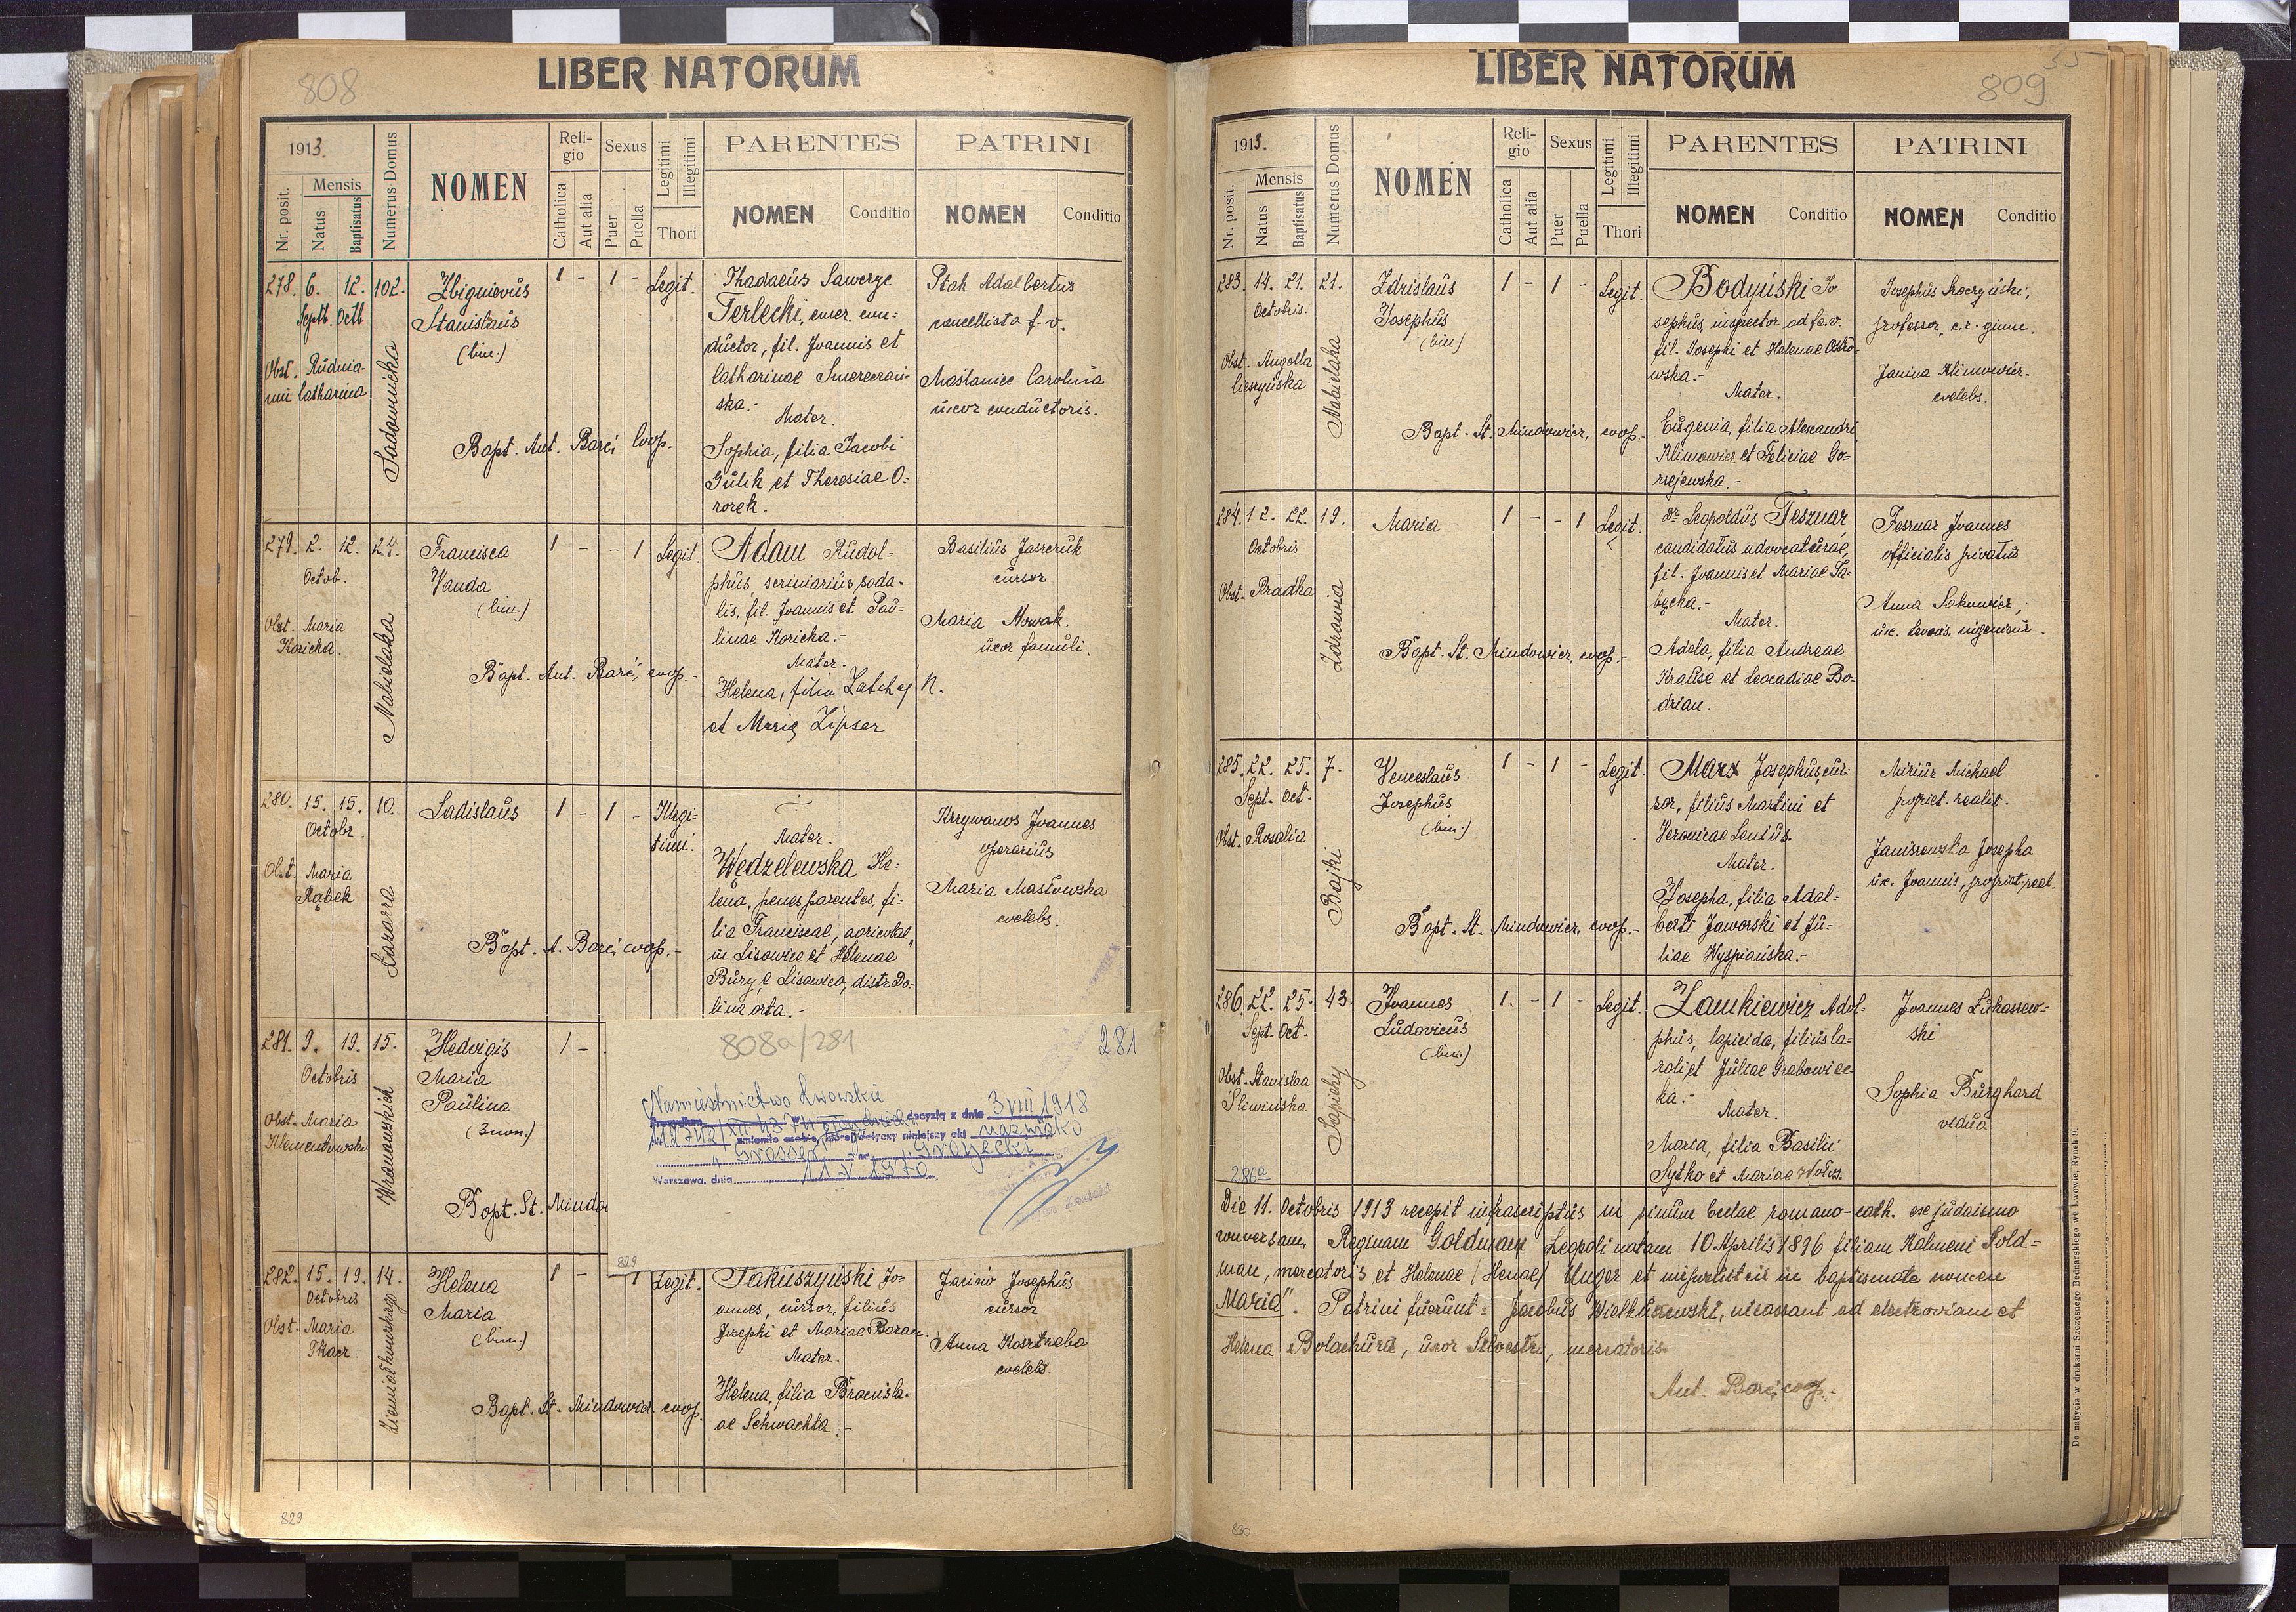 808
LIBER NATORUM
1913.
Nr. posit.
Mensis
Natus
Baptisatus
Numerus Domus
NOMEN
Religio
Catholica
Aut alia
Sexus
Puer
Puella
Legitimi
Illegitimi
Thori
PARENTES
NOMEN
Conditio
PATRINI
NOMEN
Conditio
278. 6. 12. 102.
Septb. Octb
Obst. Rudnia-
Catharina
Sadownicka
Zbignievus
Stanislaus
(bin.)
1 - 1 - Legit.
Bapt. Ant. Barć, Coop.
Thadaeus
Terlecki, emer. con-
ductor, fil. Joannis et
Catharinae
ska.-
Mater.
Sophia, filia Jacobi
Gulik et Theresiae O-
Ptak Adalbertus
cancellista f. v.
Carolina
uxor conductoris.
279. 2. 12. 24.
Octob.
Obst. Maria
Koricka.
Nabielaka
Francisca
Vanda
(bin.)
1 - - 1 Legit.
Bapt. Ant. Barć, coop.-
Adam Rudol-
phus, scriniarius, soda-
lis, fil. Joannis et Pau-
linae Koricka.-
Mater.
Helena, filia
et Marię Zipser
Basilius Jaszczuk
cursor
Maria Nowak.
uxor famuli.
280. 15. 15. 10.
Octobr.
Obst. Maria
Rąbek
Łazarza
Ladislaus
1 - 1 - Illegi-
timi.
Bapt. A. Barć, coop.-
Mater.
Wędzelewska He-
lena, penes parentes, fi-
lia Franciscae, agricolae,
in Lisowice et Helenae
Bury, e Lisowice, distr. Do-
lina orta.-
Krzywanos Joannes
operarius
Maria Masłowska
coelebs.
281. 9. 19. 15.
Octobris
Obst. Maria
Klementowska
Wronowskich
Hedvigis
Maria
Paulina
(3 nom.)
1 -
Bapt. St. Mindo
808a/281
281
Namiestnictwo Lwowskie
decyzją z dnia 3 VIII 1918
zmieniło nazwisko
"Grosser" na "Grojecki"
Warszawa, dnia 11 V 1970
829
282. 15. 19. 14.
Octobris
Obst. Maria
Tkacz
Helena
Maria
(bin.)
1 - - 1 Legit.
Bapt. St. Mindowicz coop.
Jakuszyński Jo-
annes, cursor, filius
Josephi et Mariae Baran.
Mater.
Helena, filia Bronisla-
ae Schwachta.-
Josephus
cursor
Anna
coelebs.
829
809
LIBER NATORUM
1913.
Nr. posit.
Mensis
Natus
Baptisatus
Numerus Domus
NOMEN
Religio
Catholica
Aut alia
Sexus
Puer
Puella
Legitimi
Illegitimi
Thori
PARENTES
NOMEN
Conditio
PATRINI
NOMEN
Conditio
283. 14. 21. 21.
Octobris.
Obst. Angella
Cieszyńska
Nabielaka
Zdzislaus
Josephus
(bin)
1 - 1 - Legit.
Bapt. St. Mindowicz, coop.-
Bodyński Jo-
sephus, inspector ad fe. v.
fil. Josephi et Helenae Ostro-
wska.-
Mater.
Eugenia, filia Alexandri
Klimowicz et Feliciae Go-
rzejewska.-
Josephus
professor, c. r. gimn.
Janina Klimowicz.
coelebs.
284. 12. 22. 19.
Octobris
Obst. Pradka
Zdrowia
Maria
1 - - 1 Legit.
Bapt. St. Mindowicz, coop.-
Dr Leopoldus Tesznar
candidatus advocaturae,
fil. Joannis et Mariae Ła-
będzka.-
Mater.
Adela, filia Andreae
Krause et Leocadiae Bo-
drian.
Tesznar Joannes
officialis privatus
Anna
ux. Leonis, ingenieur.
285. 22. 25. 7.
Sept. Oct.
Obst. Rosalia
Bajki
Venceslaus
Josephus
(bin.)
1 - 1 - Legit.
Bapt. St. Mindowicz, coop.-
Marx Josephus, cur-
sor, filius Martini et
Veronicae
Mater.
Josepha, filia Adal-
berti Jaworski et Ju-
liae Wyspiańska.-
Michael
propriet. realit.
Janiszewska Josepha
ux. Joannis, propriet. real.
286. 22. 25. 43
Sept. Oct.
Obst. Stanislaa
Śliwińska
Sapiehy
Joannes
Ludovicus
(bin.)
1. - 1 - Legit.
Zamkiewicz Adol-
phus, lapicida, filius Ca-
roli et Juliae Grabowiec-
ka.-
Mater.
Maria, filia Basilii
Sytko et Mariae
Joannes Lukaszew-
ski
Sophia Burghard
vidua
286a
Die 11. Octobris 1913 recepit infrascriptus in sinum Eccl­ae romano-cath. ex judaismo
conversam, Reginam Goldman Leopoli natam 10 Aprilis 1896 filiam Kalmeni Gold-
man, mercatoris et Helenae (Henae) Unger et in baptismate nomen
"Maria". Patrini fuerunt: Jacobus ad et
Helena Bolachura, uxor Silvestri, mercatoris
Ant. Barć, coop.-
Do nabycia w drukarni Szczęsnego Bednarskiego we Lwowie, Rynek 9.
830